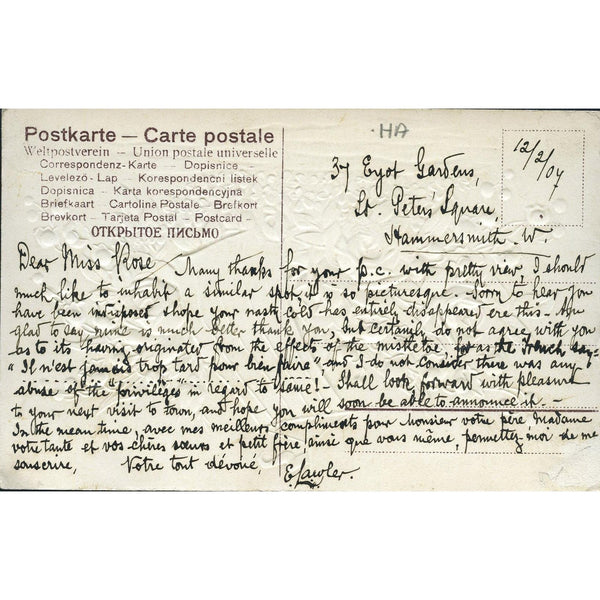 HA
Postkarte — Carte postale
Weltpostverein — Union postale universelle
Correspondenz-Karte — Dopisnice
Levelező-Lap — Korespondenční lístek
Dopisnica — Karta korespondencyjna
Briefkaart Cartolina Postale Brefkort
Brevkort — Tarjeta Postal — Postcard —
ОТКРЫТОЕ ПИСЬМО
12/2/07
37 Eyot Gardens,
St. Peters' Square,
Hammersmith. W.
Dear Miss Rose Many thanks for your p.c. with pretty view, I should
much like to inhabit a similar spot, it is so picturesque. Sorry to hear you
have been indisposed & hope your nasty cold has entirely disappeared ere this. Am
glad to say mine is much better thank you, but certainly do not agree with you
as to its having originated from the effects of the mistletoe, for as the French say-
"Il n'est jamais trop tard pour bien faire" and I do not consider there was any
abuse of the "privileges" in regard to same! - Shall look forward with pleasure
to your next visit to town, and hope you will soon be able to announce it -
In the mean time, avec mes meilleurs compliments pour Monsieur votre père Madame
votre tante et vos chères sœurs et petit frère, ainsi que vous même, permettez-moi de me
souscrire, Votre tout dévoué, E. Lawler.